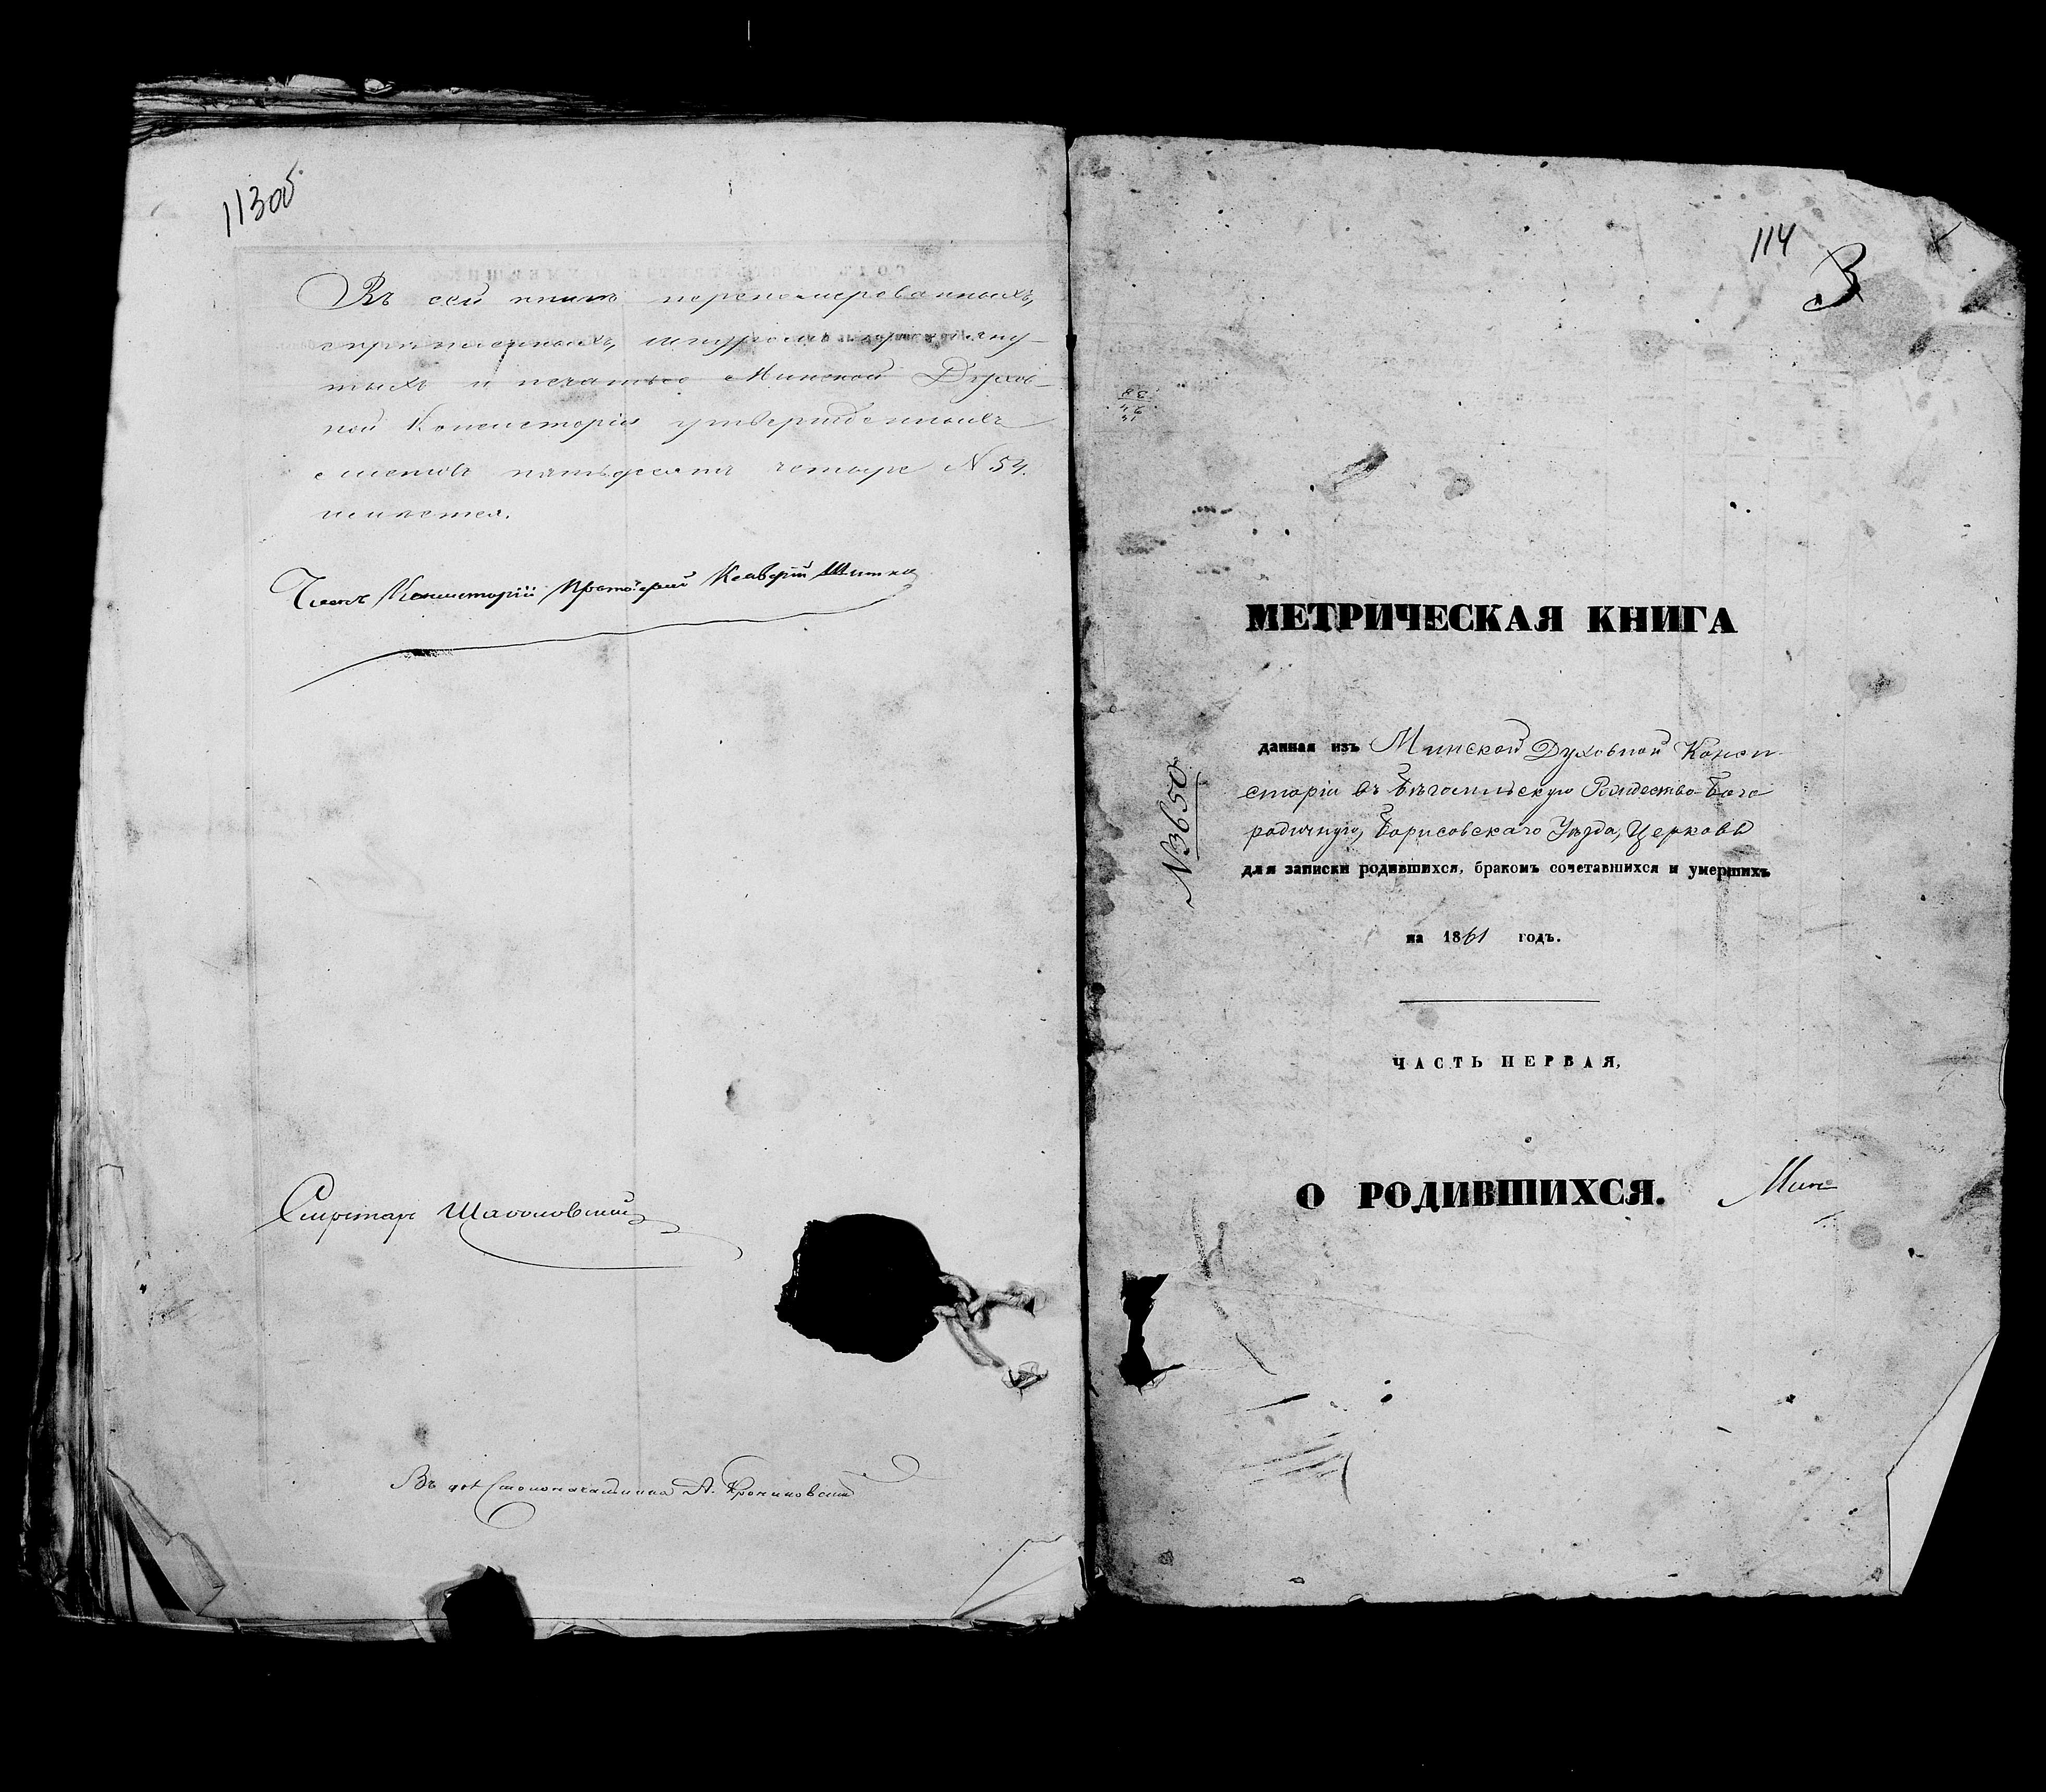 113 об
Въ сей книгѣ перенумерованныхъ,
скрѣпленныхъ, шнуромъ протяну-
тыхъ и печатью Минской Духов-
ной Консисторіи утвержденныхъ
листовъ пятьдесятъ четыре N 54.
имѣется.
Членъ Консисторіи Протоіерей
Секретарь
Въ д. Столоначальника А.
114
3
МЕТРИЧЕСКАЯ КНИГА
данная изъ Минской Духовной Конси-
сторіи въ Бѣгомльскую Рождество-Бого
родичную, Борисовскаго Уѣзда, Церковь
для записки родившихся, бракомъ сочетавшихся и умершихъ
на 1861 годъ.
ЧАСТЬ ПЕРВАЯ,
О РОДИВШИХСЯ.
Мин-
N 3650